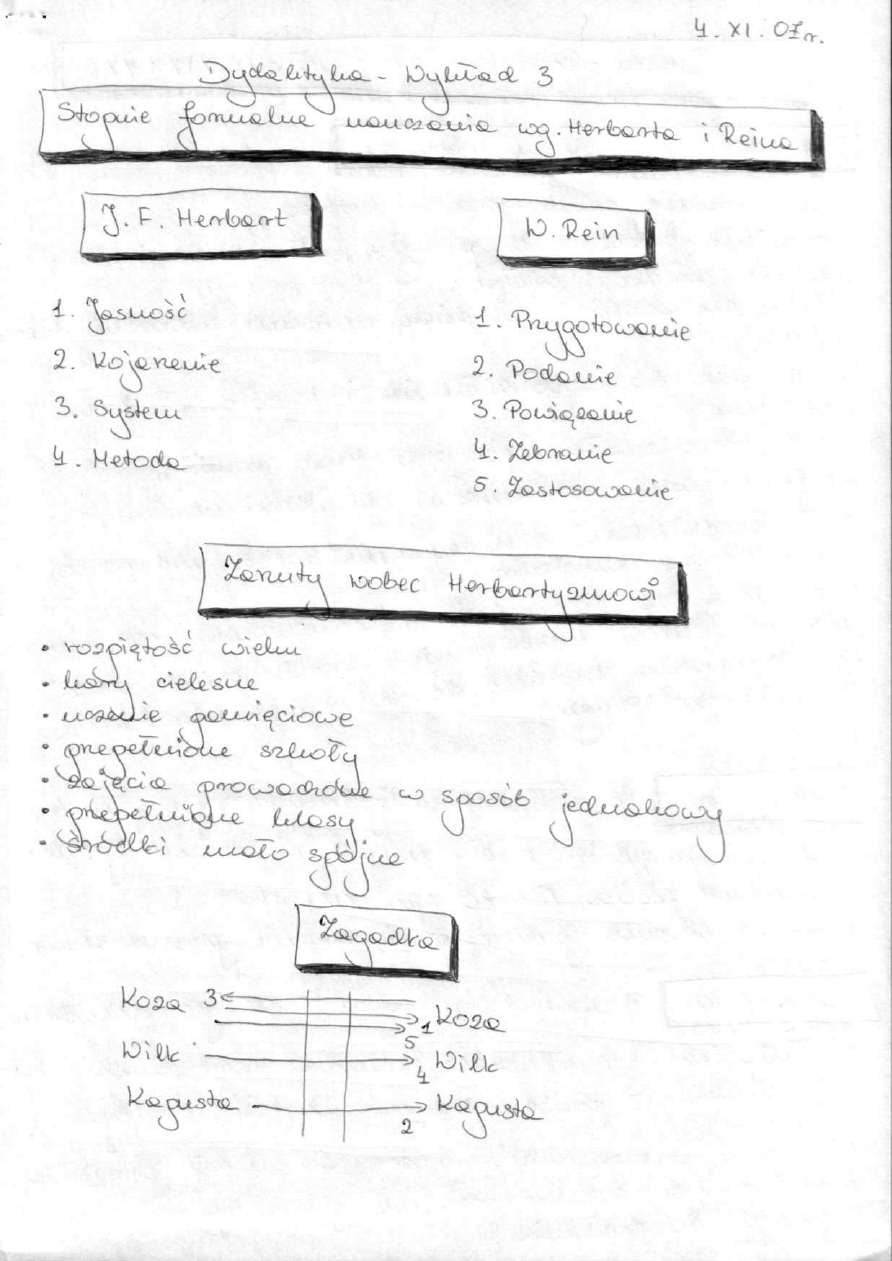 4. XI. 07r.
Dydaktyka - Wykład 3
Stopnie formalne nauczania wg. Herbarta i Reina
J. F. Herbart
W. Rein
1. Jasność
2. Kojarzenie
3. System
4. Metoda
1. Przygotowanie
2. Podanie
3. Powiązanie
4. Zebranie
5. Zastosowanie
Zarzuty wobec Herbartyzmowi
• rozpiętość wieku
• kary cielesne
• uczenie pamięciowe
• przepełnione szkoły
• zajęcia prowadzone w sposób jednakowy
• przepełnione klasy
• środki mało spójne
Zagadka
Koza 3 1 Koza
5
Wilk 4 Wilk
Kapusta 2 Kapusta